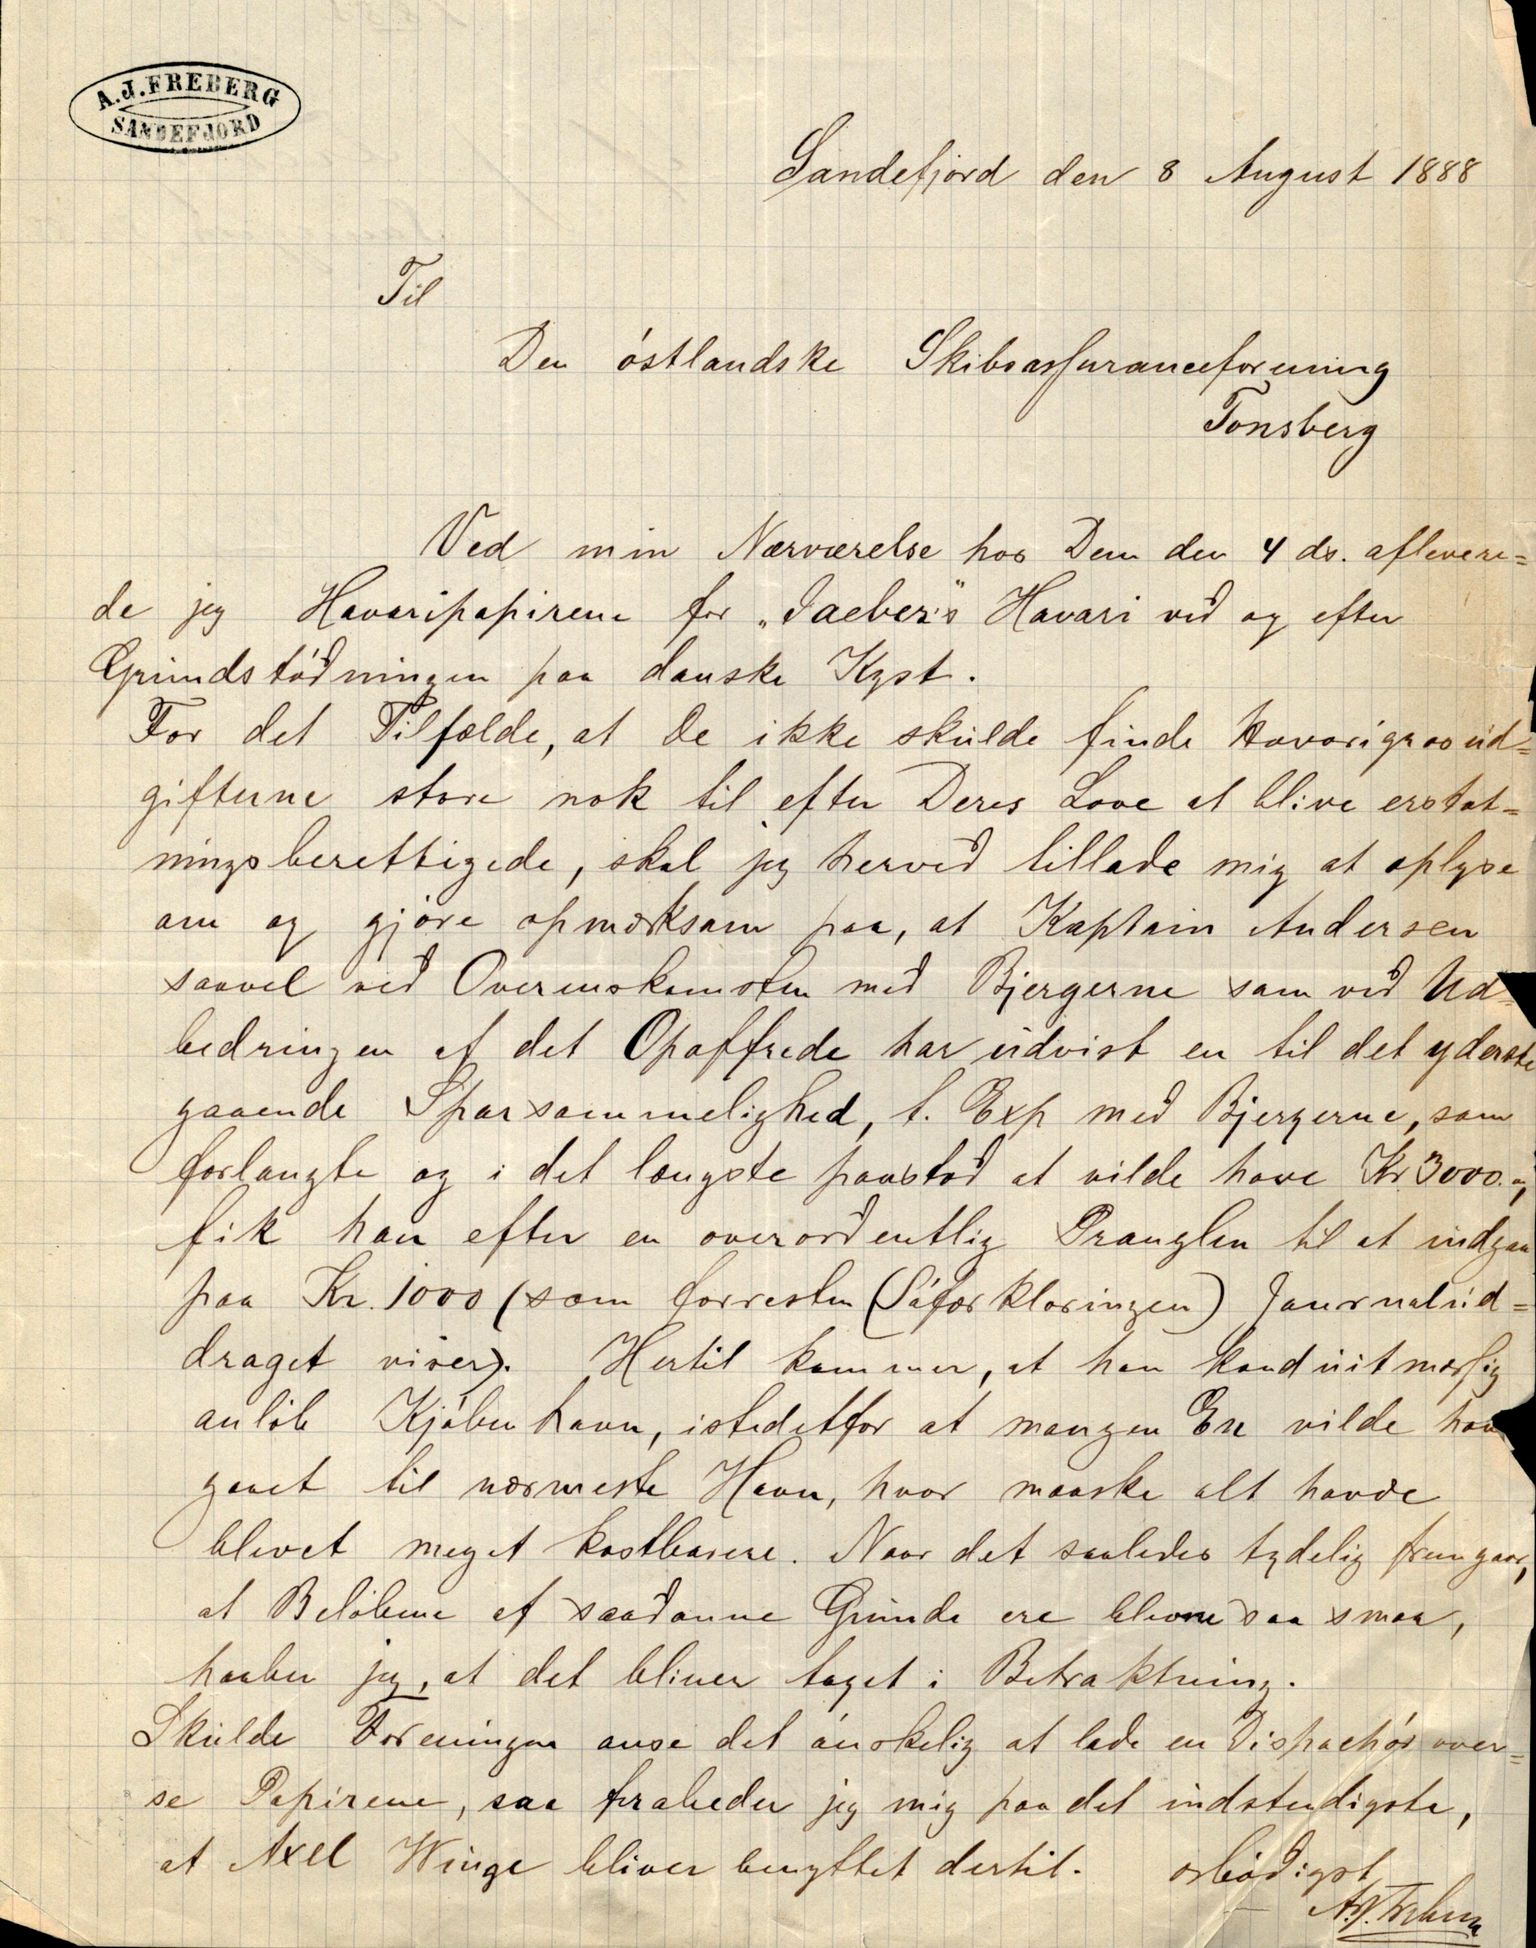 A.J. FREBERG
SANDEFJORD
Sandefjord den 8 August 1888
Til
Den östlandske Skibsassuranceforening
Tonsberg
Ved min Nærværelse hos Dem den 4 ds. aflevere=
de jeg Havaripapirene for „Idaeber's" Havari ved og efter
Grundstödningen paa danske Kyst.
For det Tilfælde, at De ikke skulde finde Havarigrosud=
gifterne store nok til efter Deres Love at blive erstat=
ningsberettigede, skal jeg herved tillade mig at oplyse
om og gjöre opmærksom paa, at Kaptain Andersen
saavel ved Overenskomsten med Bjergerne som ved Ud=
bedringen af det Opoffrede har udvist en til det yderste
gaaende Sparsommelighed, t. Exp med Bjergerne, som
forlangte og i det længste paastod at vilde have Kr 3000.
fik han efter en overordentlig Pranglen til at indgaa
paa Kr. 1000 (som forresten (Söforklaringen) Journalud=
draget viser). Hertil kommer, at han konduitmæssig
anlöb Kjöbenhavn, istedetfor at mangen En vilde have
gaaet til nærmeste Havn, hvor maaske alt havde
blevet meget kostbarere. Naar det saaledes tydelig fremgaar,
at Belöbene af saadanne Grunde ere blevne saa smaa,
haaber jeg, at det bliver taget i Betraktning.
Skulde Foreningen anse det önskelig at lade en Dispachör over=
se Papirene, saa frabeder jeg mig paa det indstendigste,
at Axel Winge bliver benyttet dertil. ærbödigst
A.J. Freberg